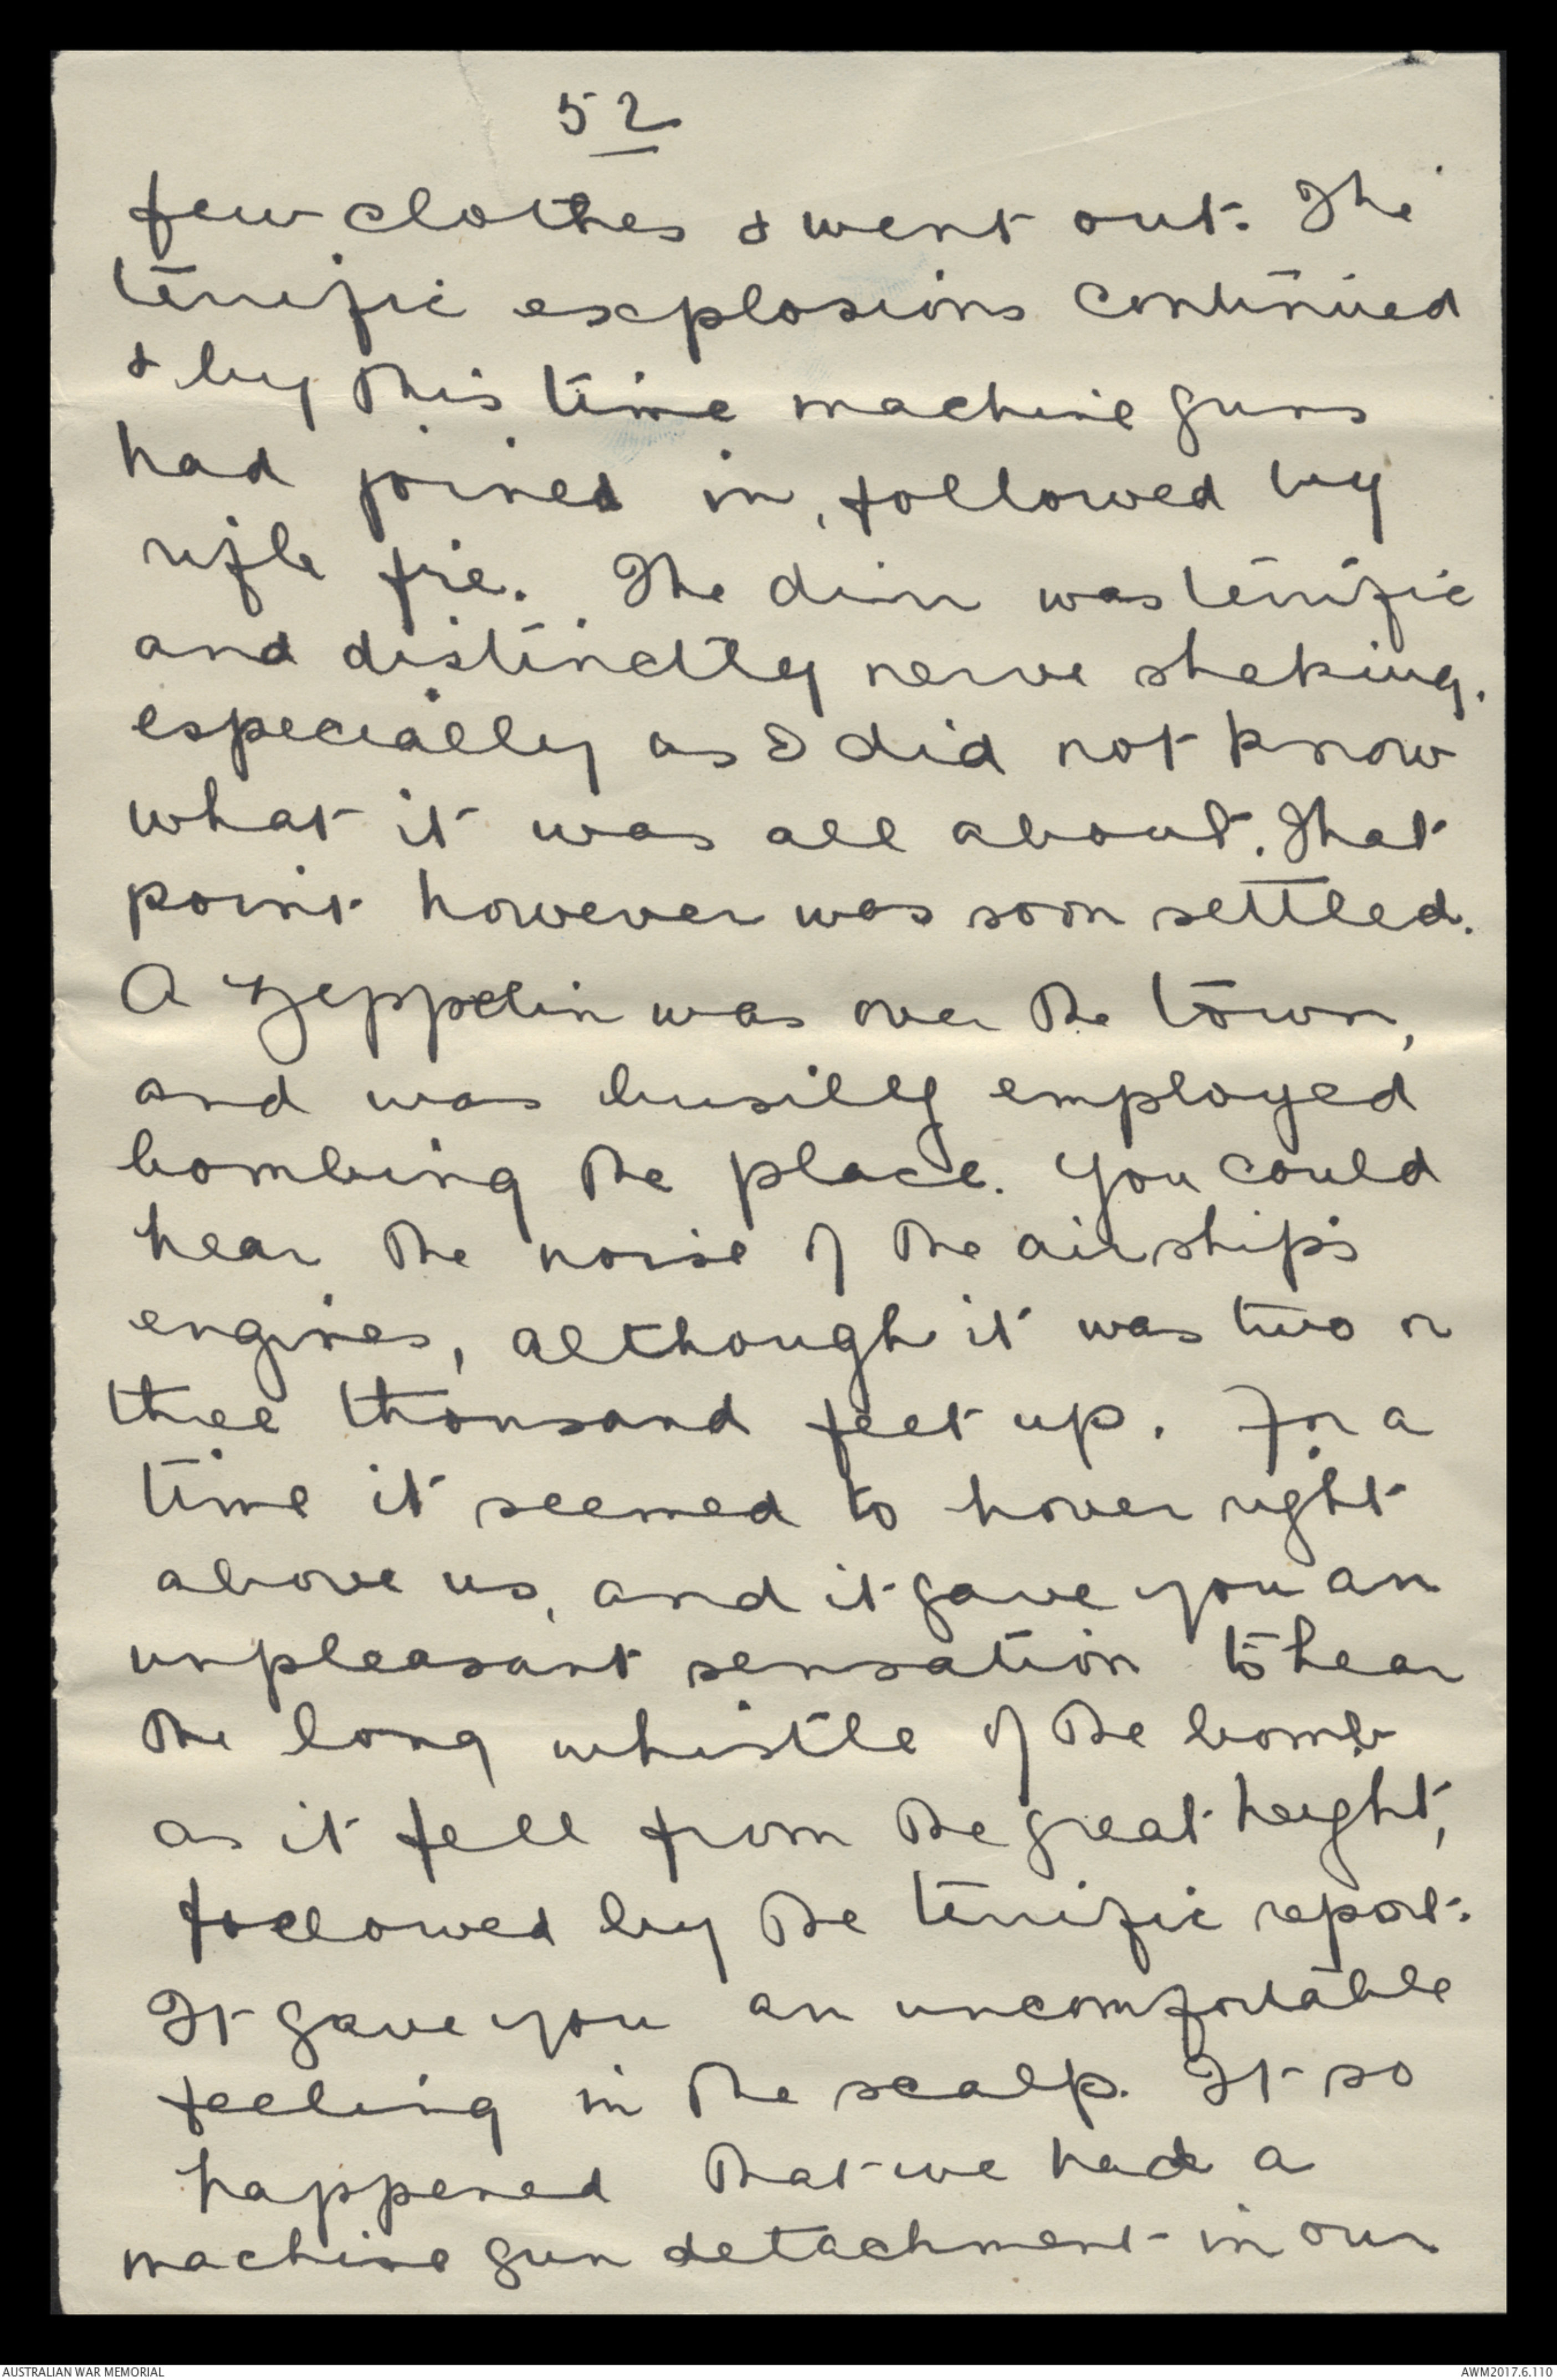 52
few clothes & went out. The
terrific explosions continued
& by this time machine guns
had joined in, followed by
rifle fire. The din was terrific
and distinctly nerve shaking.
especially as I did not know
what it was all about. That
point however was soon settled.
A Zeppelin was over the town,
and was busily employed
bombing the place. You could
hear the noise of the airship's
engines, although it was two or
three thousand feet up. For a
time it seemed to hover right
above us, and it gave you an
unpleasant sensation to hear
the long whistle of the bomb
as it fell from the great height,
followed by the terrific report.
It gave you an uncomfortable
feeling in the scalp. It so
happened that we had a
machine gun detachment in our
AUSTRALIAN WAR MEMORIAL
AWM2017.6.110